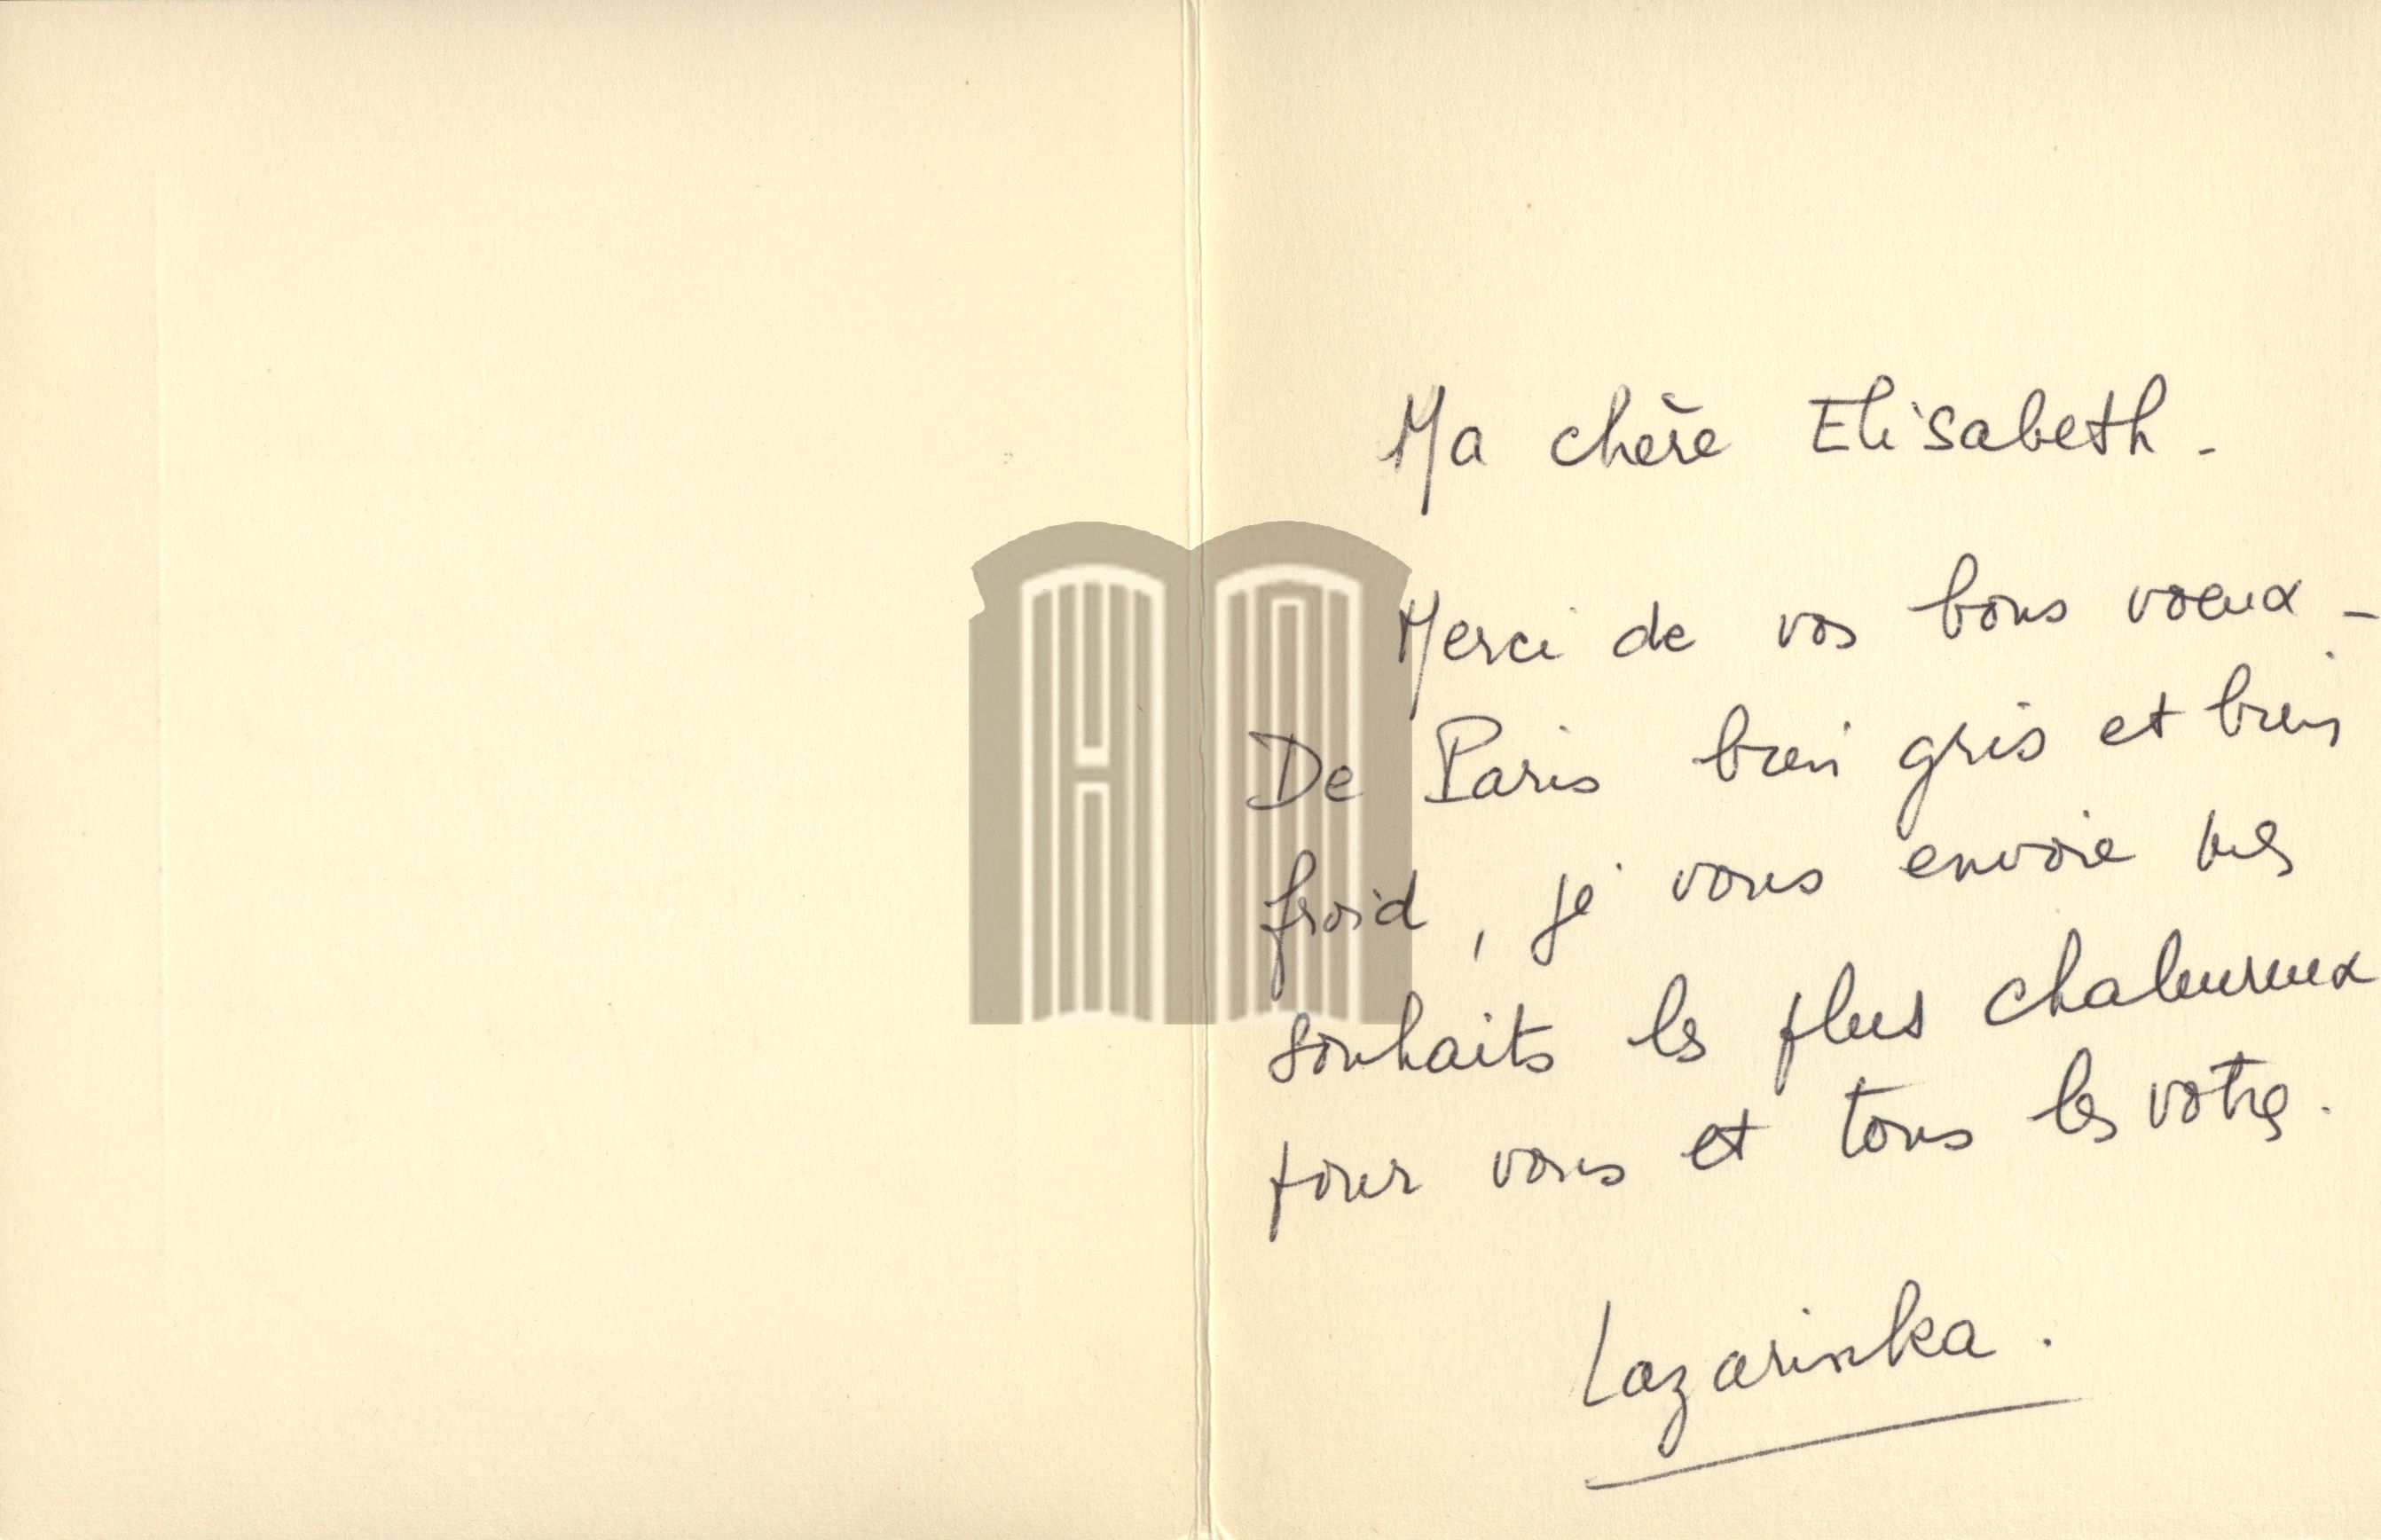 Ma chère Elisabeth -
Merci de vos bons voeux -
De Paris bien gris et bien
froid, je vous envoie mes
souhaits les plus chaleureux
pour vous et tous les votres.
Lazarinka.